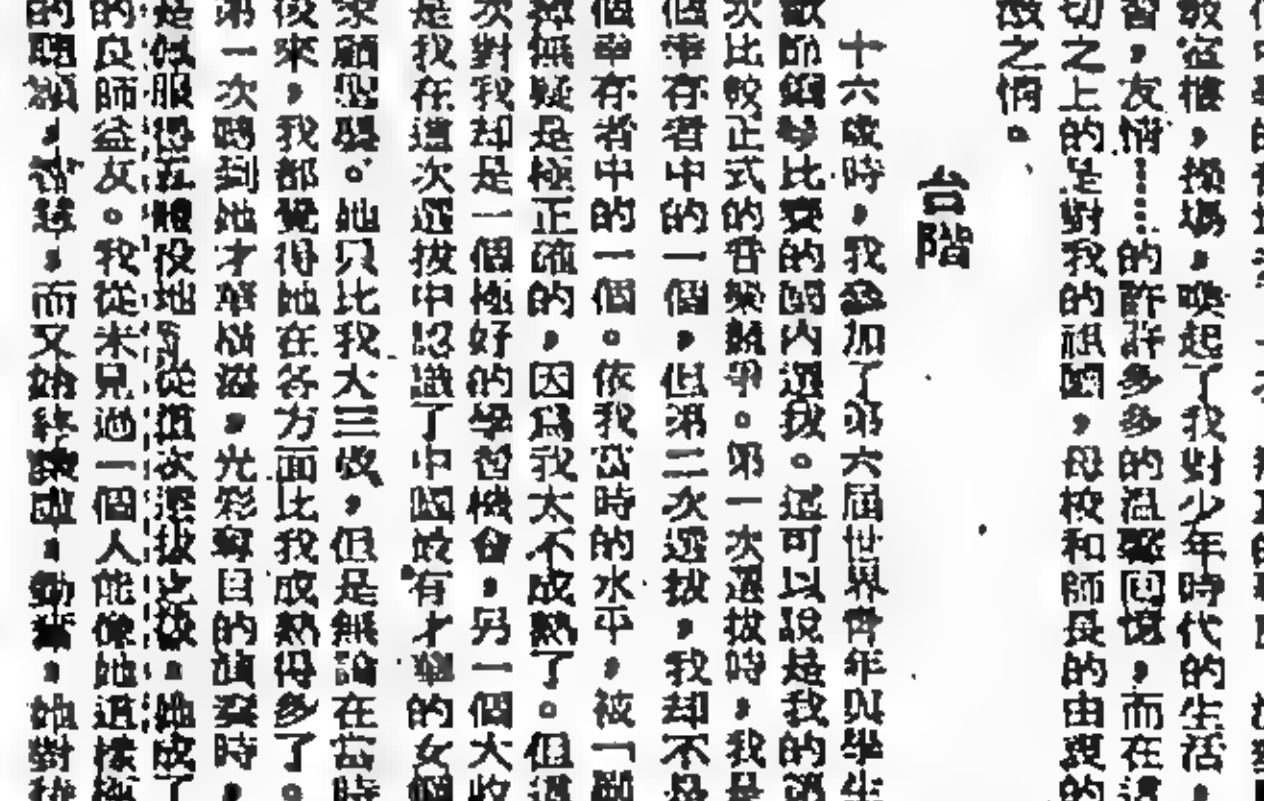 教室樓，操場，喚起了我對少年時代的生活，
習，友情……的許許多多的溫馨回憶，而在這
切之上的是對我的祖國，母校和師長的由衷的
激之情。
台階
十六歲時，我參加了第六屆世界青年與學生
歡節鋼琴比賽的國內選拔。這可以說是我的第
次比較正式的音樂競爭。第一次選拔時，我是
個幸存者中的一個，但第二次選拔，我却不是
個幸存者中的一個。依我當時的水平，被「
無疑是極正確的，因爲我太不成熟了。但這
次對我却是一個極好的學習機會，另一個大收
是我在這次選拔中認識了中國最有才華的女鋼
家顧聖嬰。她只比我大三歲，但是無論在當時
後來，我都覺得她在各方面比我成熟得多了。
第一次聽到她才華橫溢，光彩奪目的演奏時，
是佩服得五體投地，從這次選拔之後，她成了
的良師益友。我從未見過一個人能像她這樣極
的聰穎，智慧，而又始終謙虛，勤奮，她對從